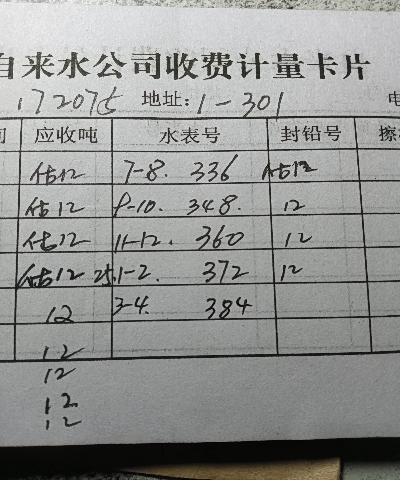 自来水公司收费计量卡片
172075 地址: 1-301
应收吨 水表号 封铅号
估12 7-8. 336 估12
估12 9-10. 348. 12
估12 11-12. 360 12
估12 25.1-2. 372 12
12 3-4. 384
12
12
12
12